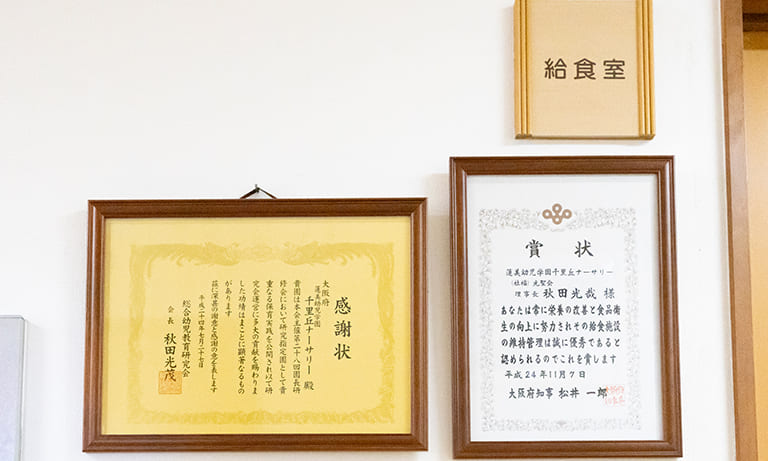 給食室
感謝状
大阪府
蓮美幼児学園
千里丘ナーサリー 殿
貴園は本会主催第二十八回園長研
修会において研究指定園として貴
重なる保育実践を公開され以て研
究会運営に多大の貢献を賜わりま
した功績はまことに顕著なるもの
があります
茲に深甚の謝意と感謝の意を表します
平成二十四年七月二十七日
総合幼児教育研究会
会長 秋田光茂
賞状
蓮美幼児学園千里丘ナーサリー
(社福)光聖会
理事長 秋田光哉 様
あなたは常に栄養の改善と食品衛
生の向上に努力されその給食施設
の維持管理は誠に優秀であると
認められるのでこれを賞します
平成24年11月7日
大阪府知事 松井一郎